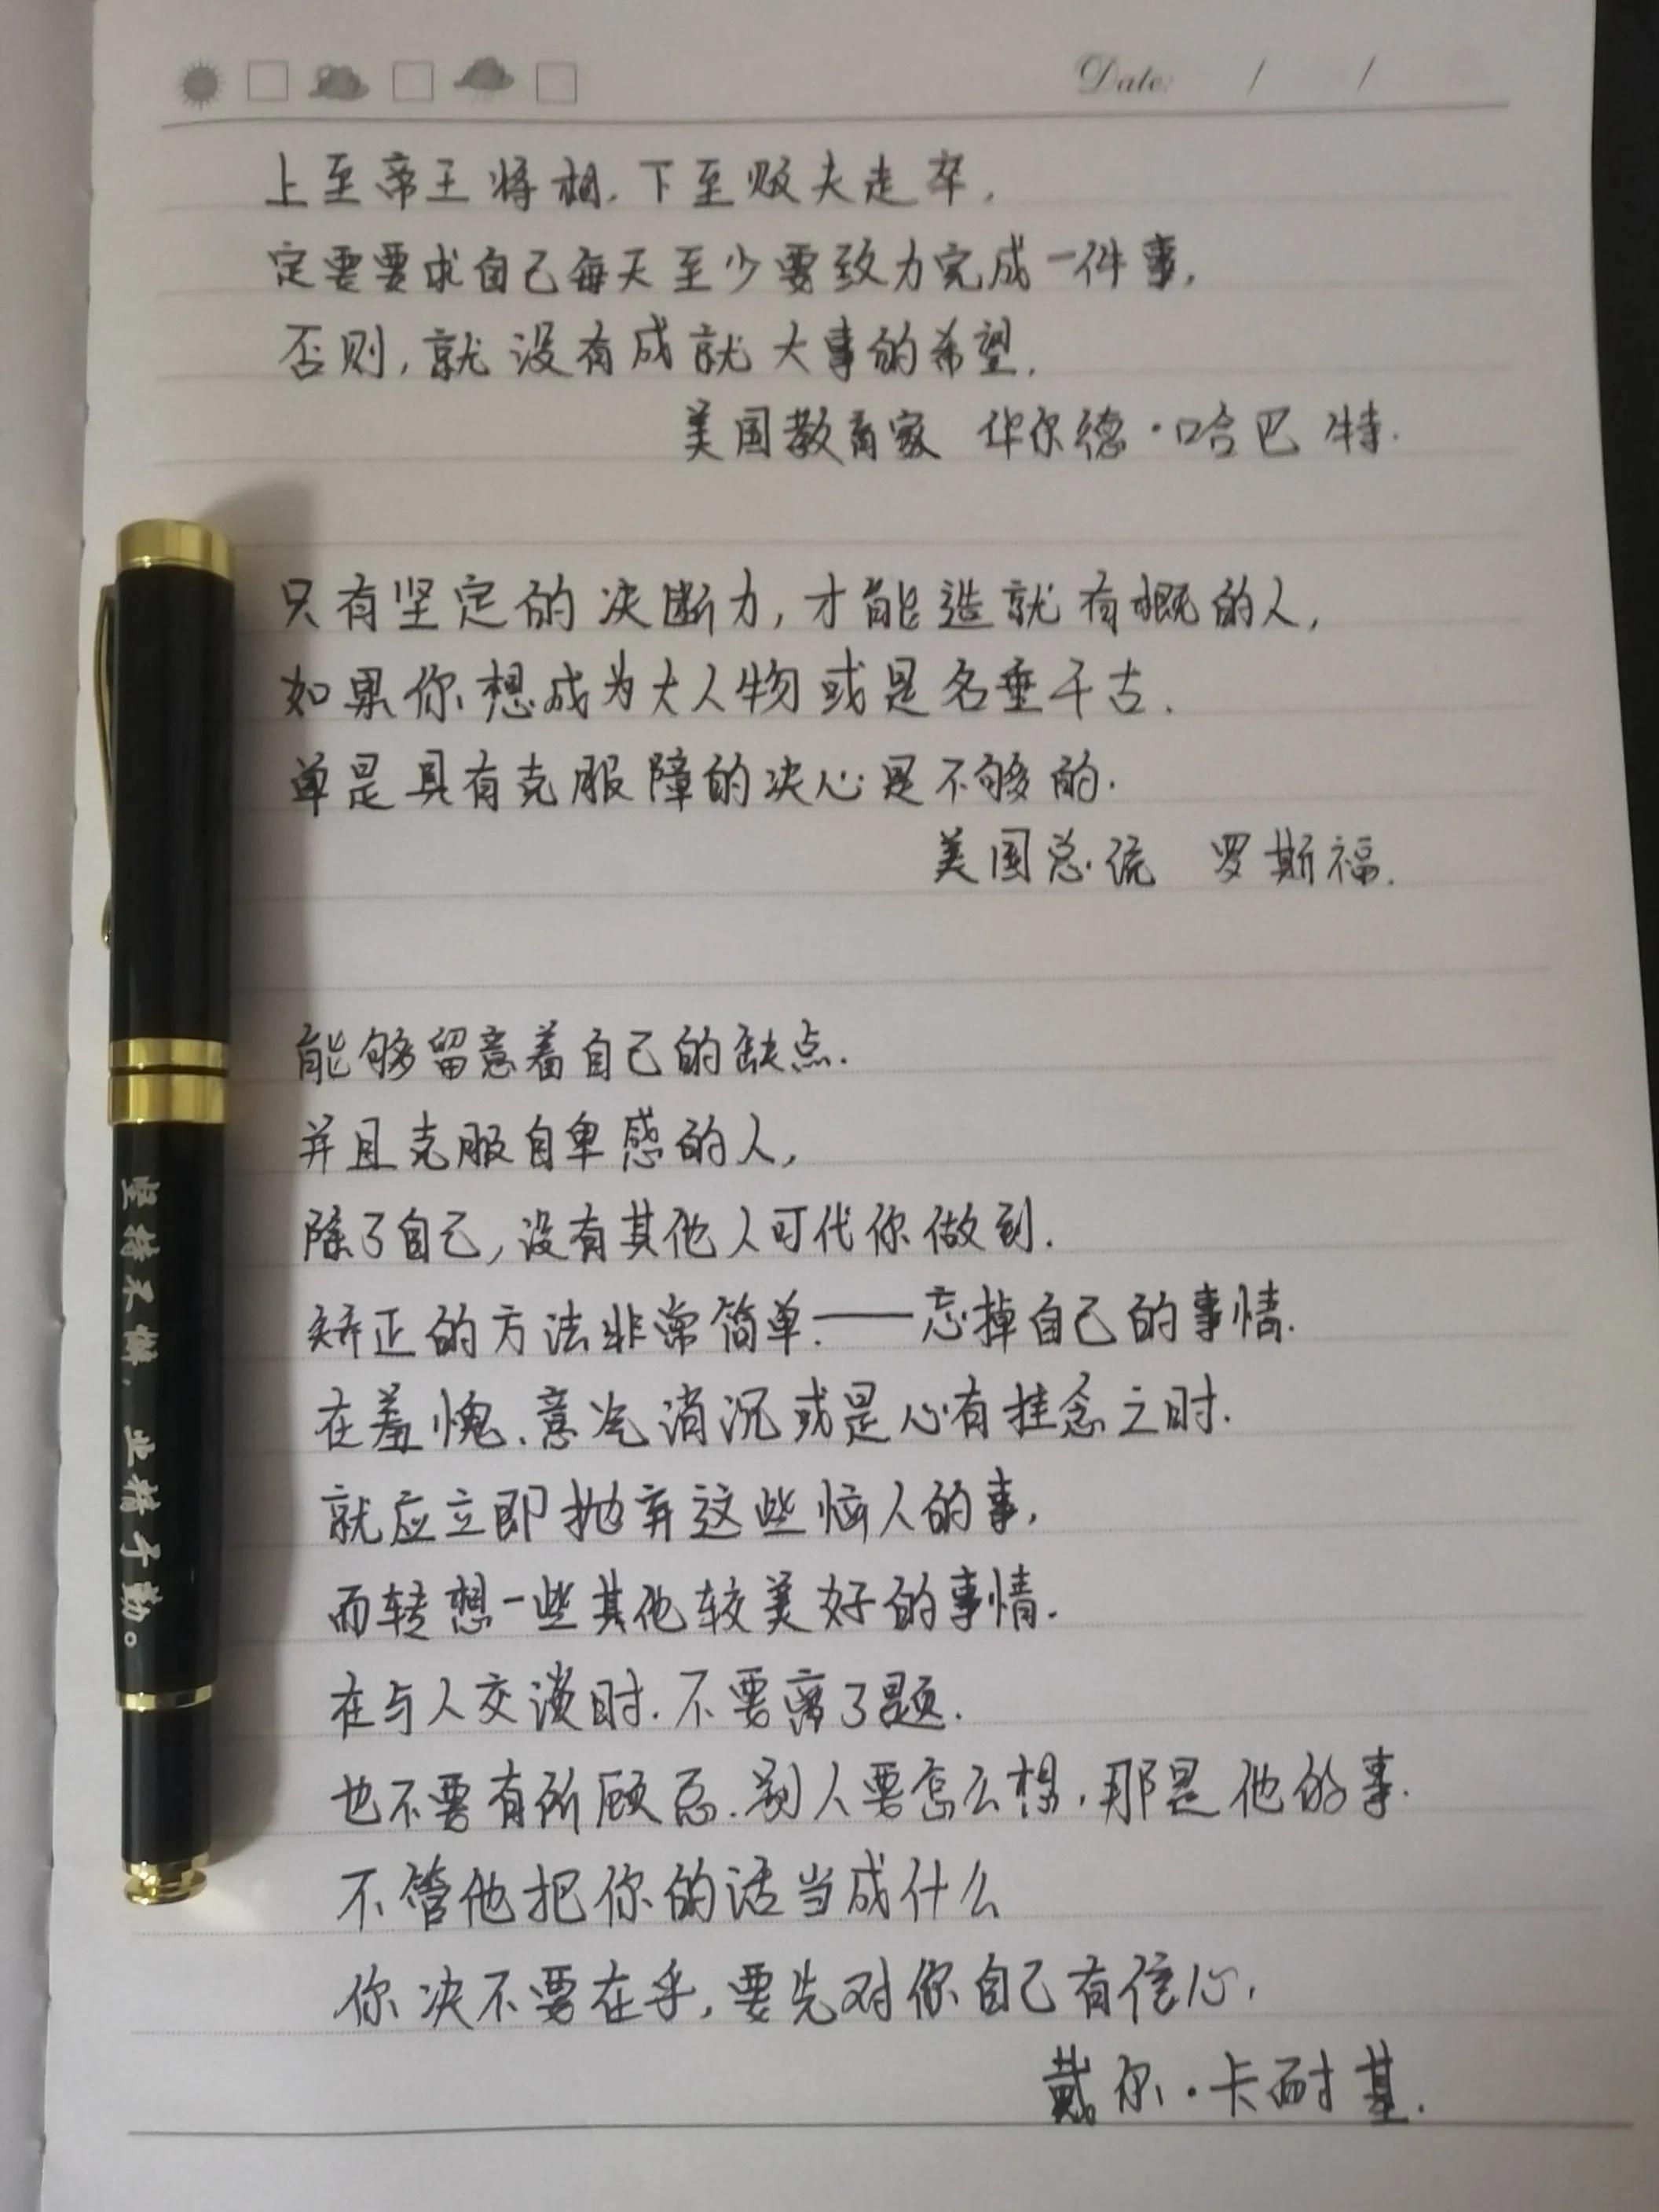 Date: / /
上至帝王将相,下至贩夫走卒,
定要要求自己每天至少要致力完成一件事,
否则,就没有成就大事的希望.
美国教育家 华尔德·哈巴特.
只有坚定的决断力,才能造就有概的人,
如果你想成为大人物或是名垂千古.
单是具有克服障的决心是不够的.
美国总统 罗斯福.
能够留意着自己的缺点.
并且克服自卑感的人,
除了自己,没有其他人可代你做到.
矫正的方法非常简单.——忘掉自己的事情.
在羞愧、意气消沉或是心有挂念之时.
就应立即抛弃这些恼人的事,
而转想一些其他较美好的事情.
在与人交谈时.不要离了题.
也不要有所顾忌.别人要怎么想,那是他的事.
不管他把你的话当成什么
你决不要在乎,要先对你自己有信心,
戴尔·卡耐基.
坚持不懈,业精于勤。